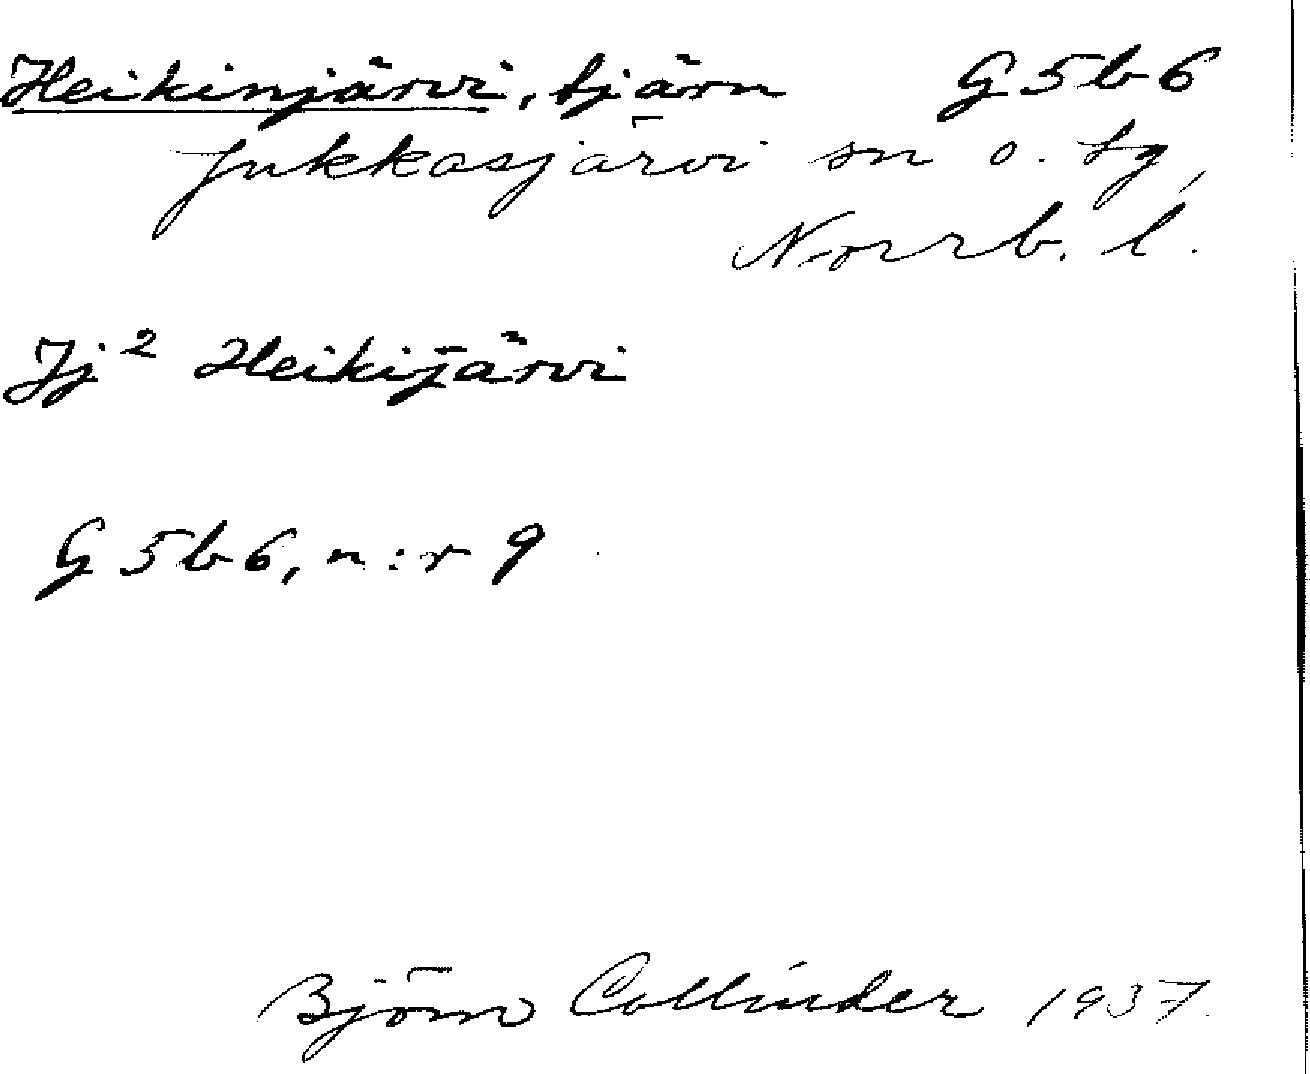 Heikinjärvi, tjärn G5b6
Jukkasjärvi sn o. tg,
Norrb. l.
Jj² Heikijärvi
G5b6, n:r 9
Björn Collinder 1937.